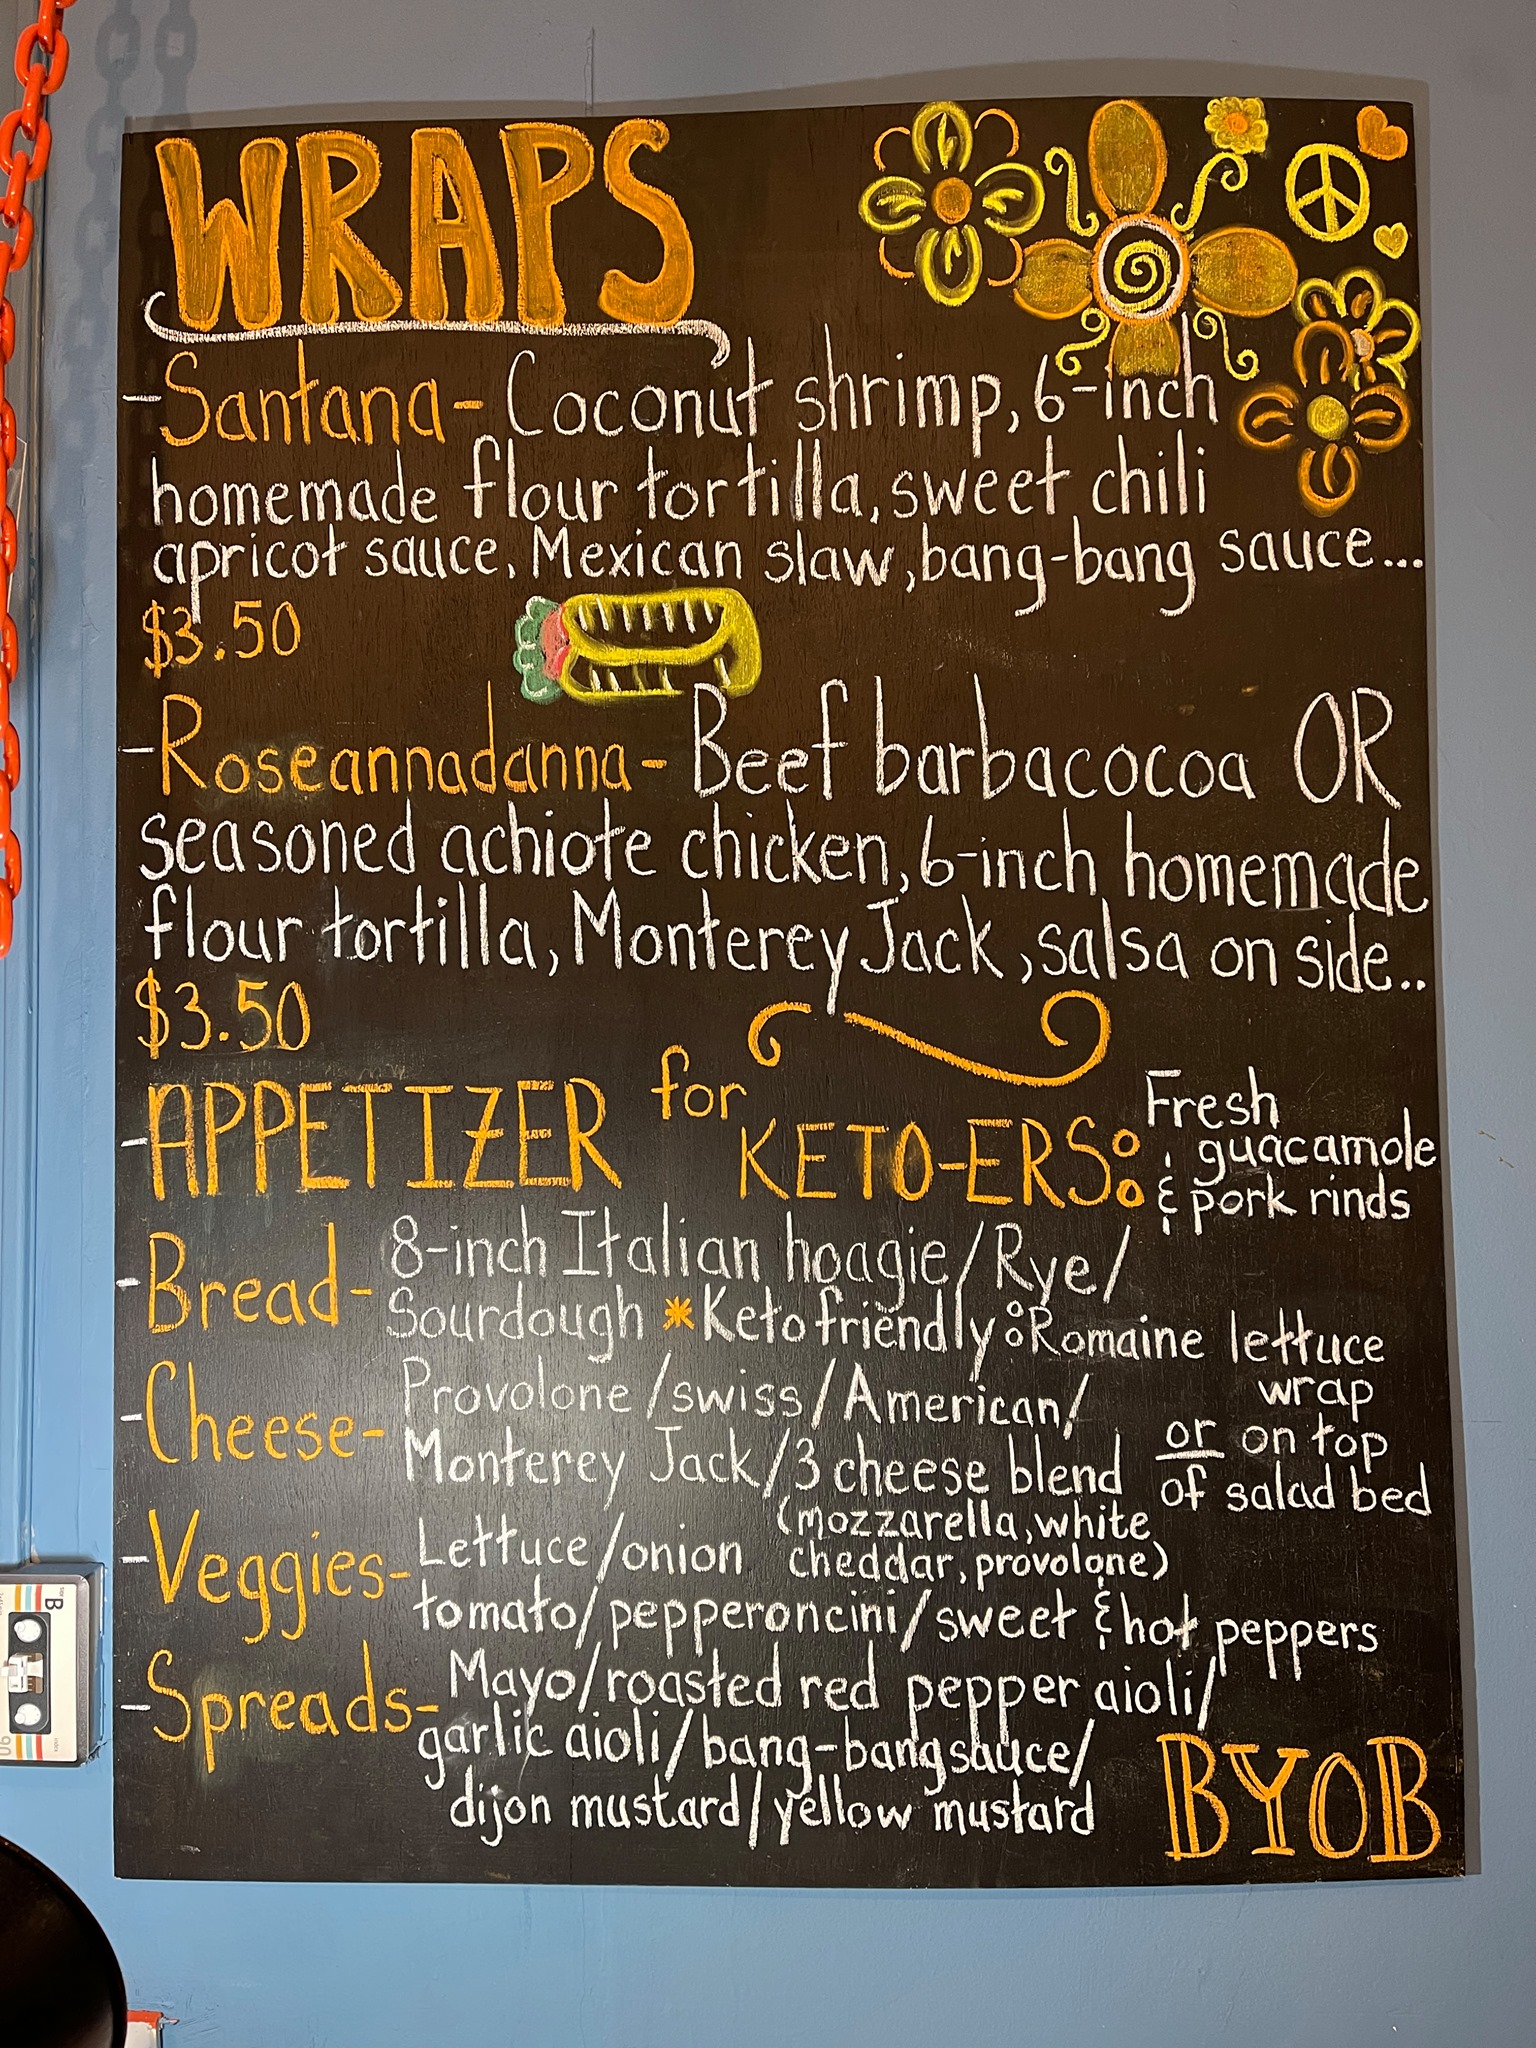 WRAPS
-Santana- Coconut shrimp, 6-inch
homemade flour tortilla, sweet chili
apricot sauce, Mexican slaw, bang-bang sauce...
$3.50
-Roseannadanna- Beef barbacocoa OR
seasoned achiote chicken, 6-inch homemade
flour tortilla, Monterey Jack, salsa on side..
$3.50
-APPETIZER for KETO-ERS: Fresh
guacamole
& pork rinds
-Bread- 8-inch Italian hoagie/Rye/
Sourdough *Keto friendly: Romaine lettuce
wrap
or on top
of salad bed
-Cheese- Provolone/swiss/American/
Monterey Jack/3 cheese blend
(mozzarella, white
cheddar, provolone)
-Veggies- Lettuce/onion
tomato/pepperoncini/sweet & hot peppers
-Spreads- Mayo/roasted red pepper aioli/
garlic aioli/bang-bang sauce/
dijon mustard/yellow mustard
BYOB
B
90